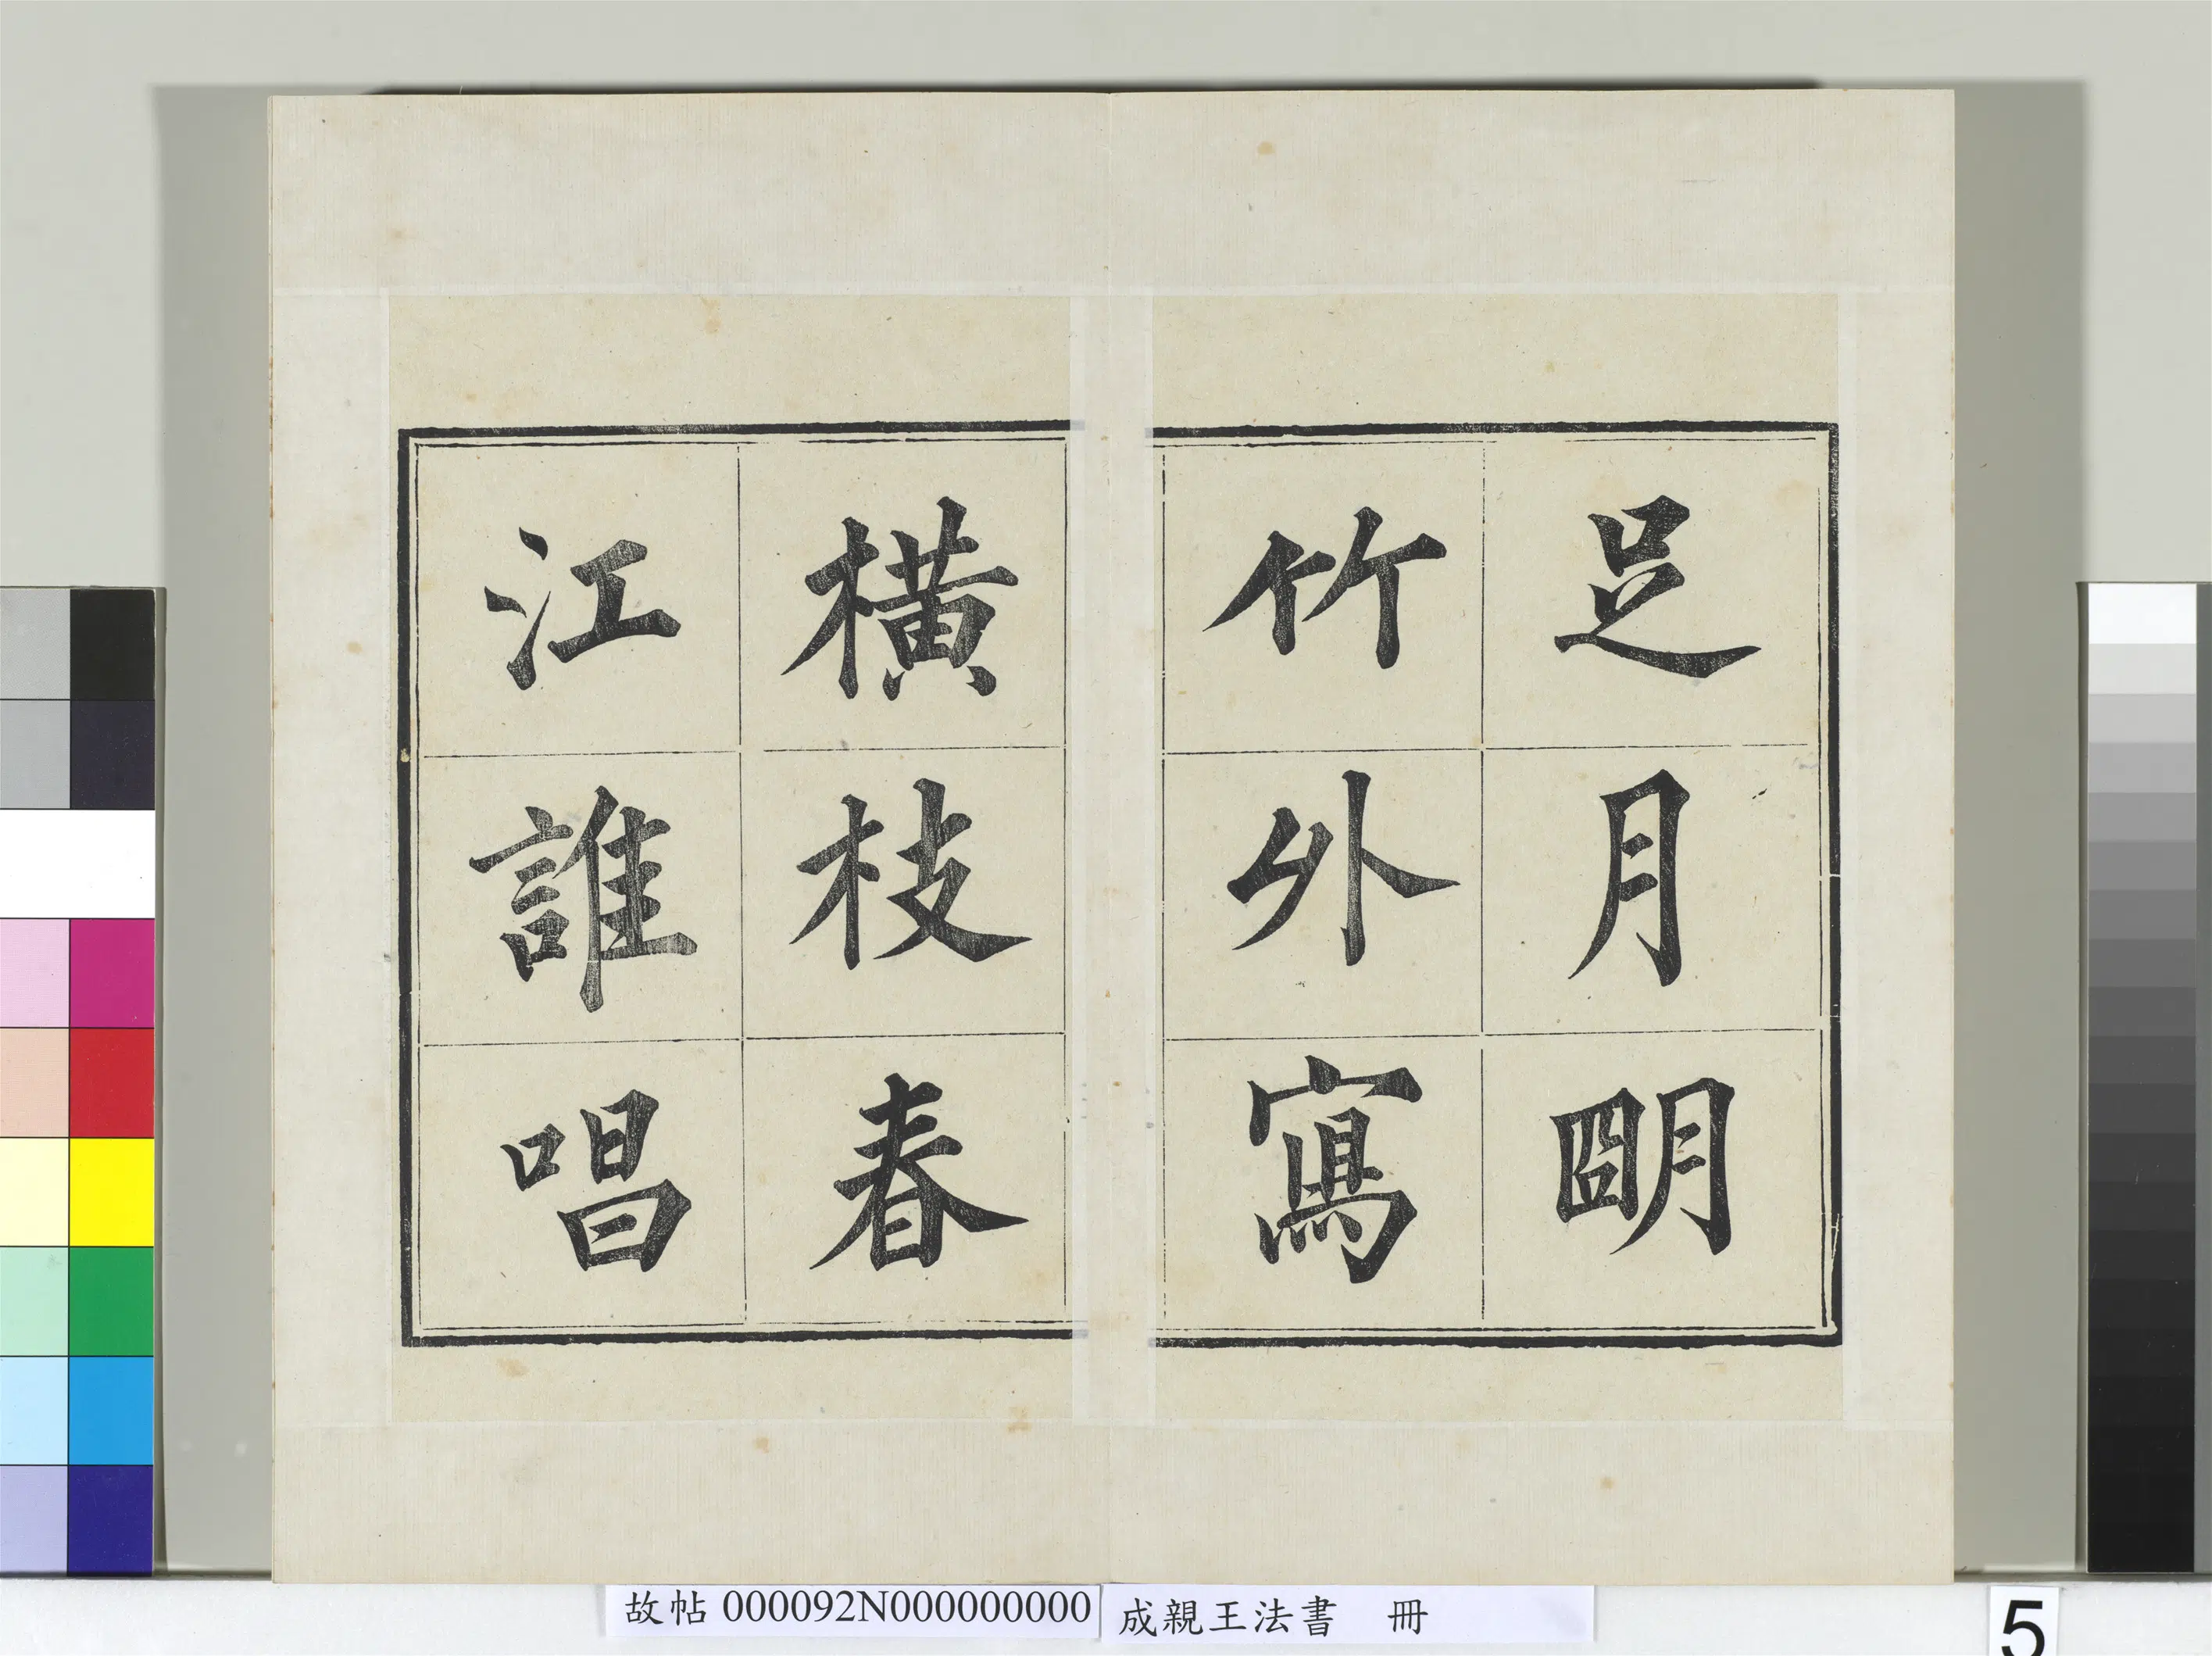 足月朙
竹外寫
橫枝春
江誰唱
故帖 000092N000000000
成親王法書 冊
5